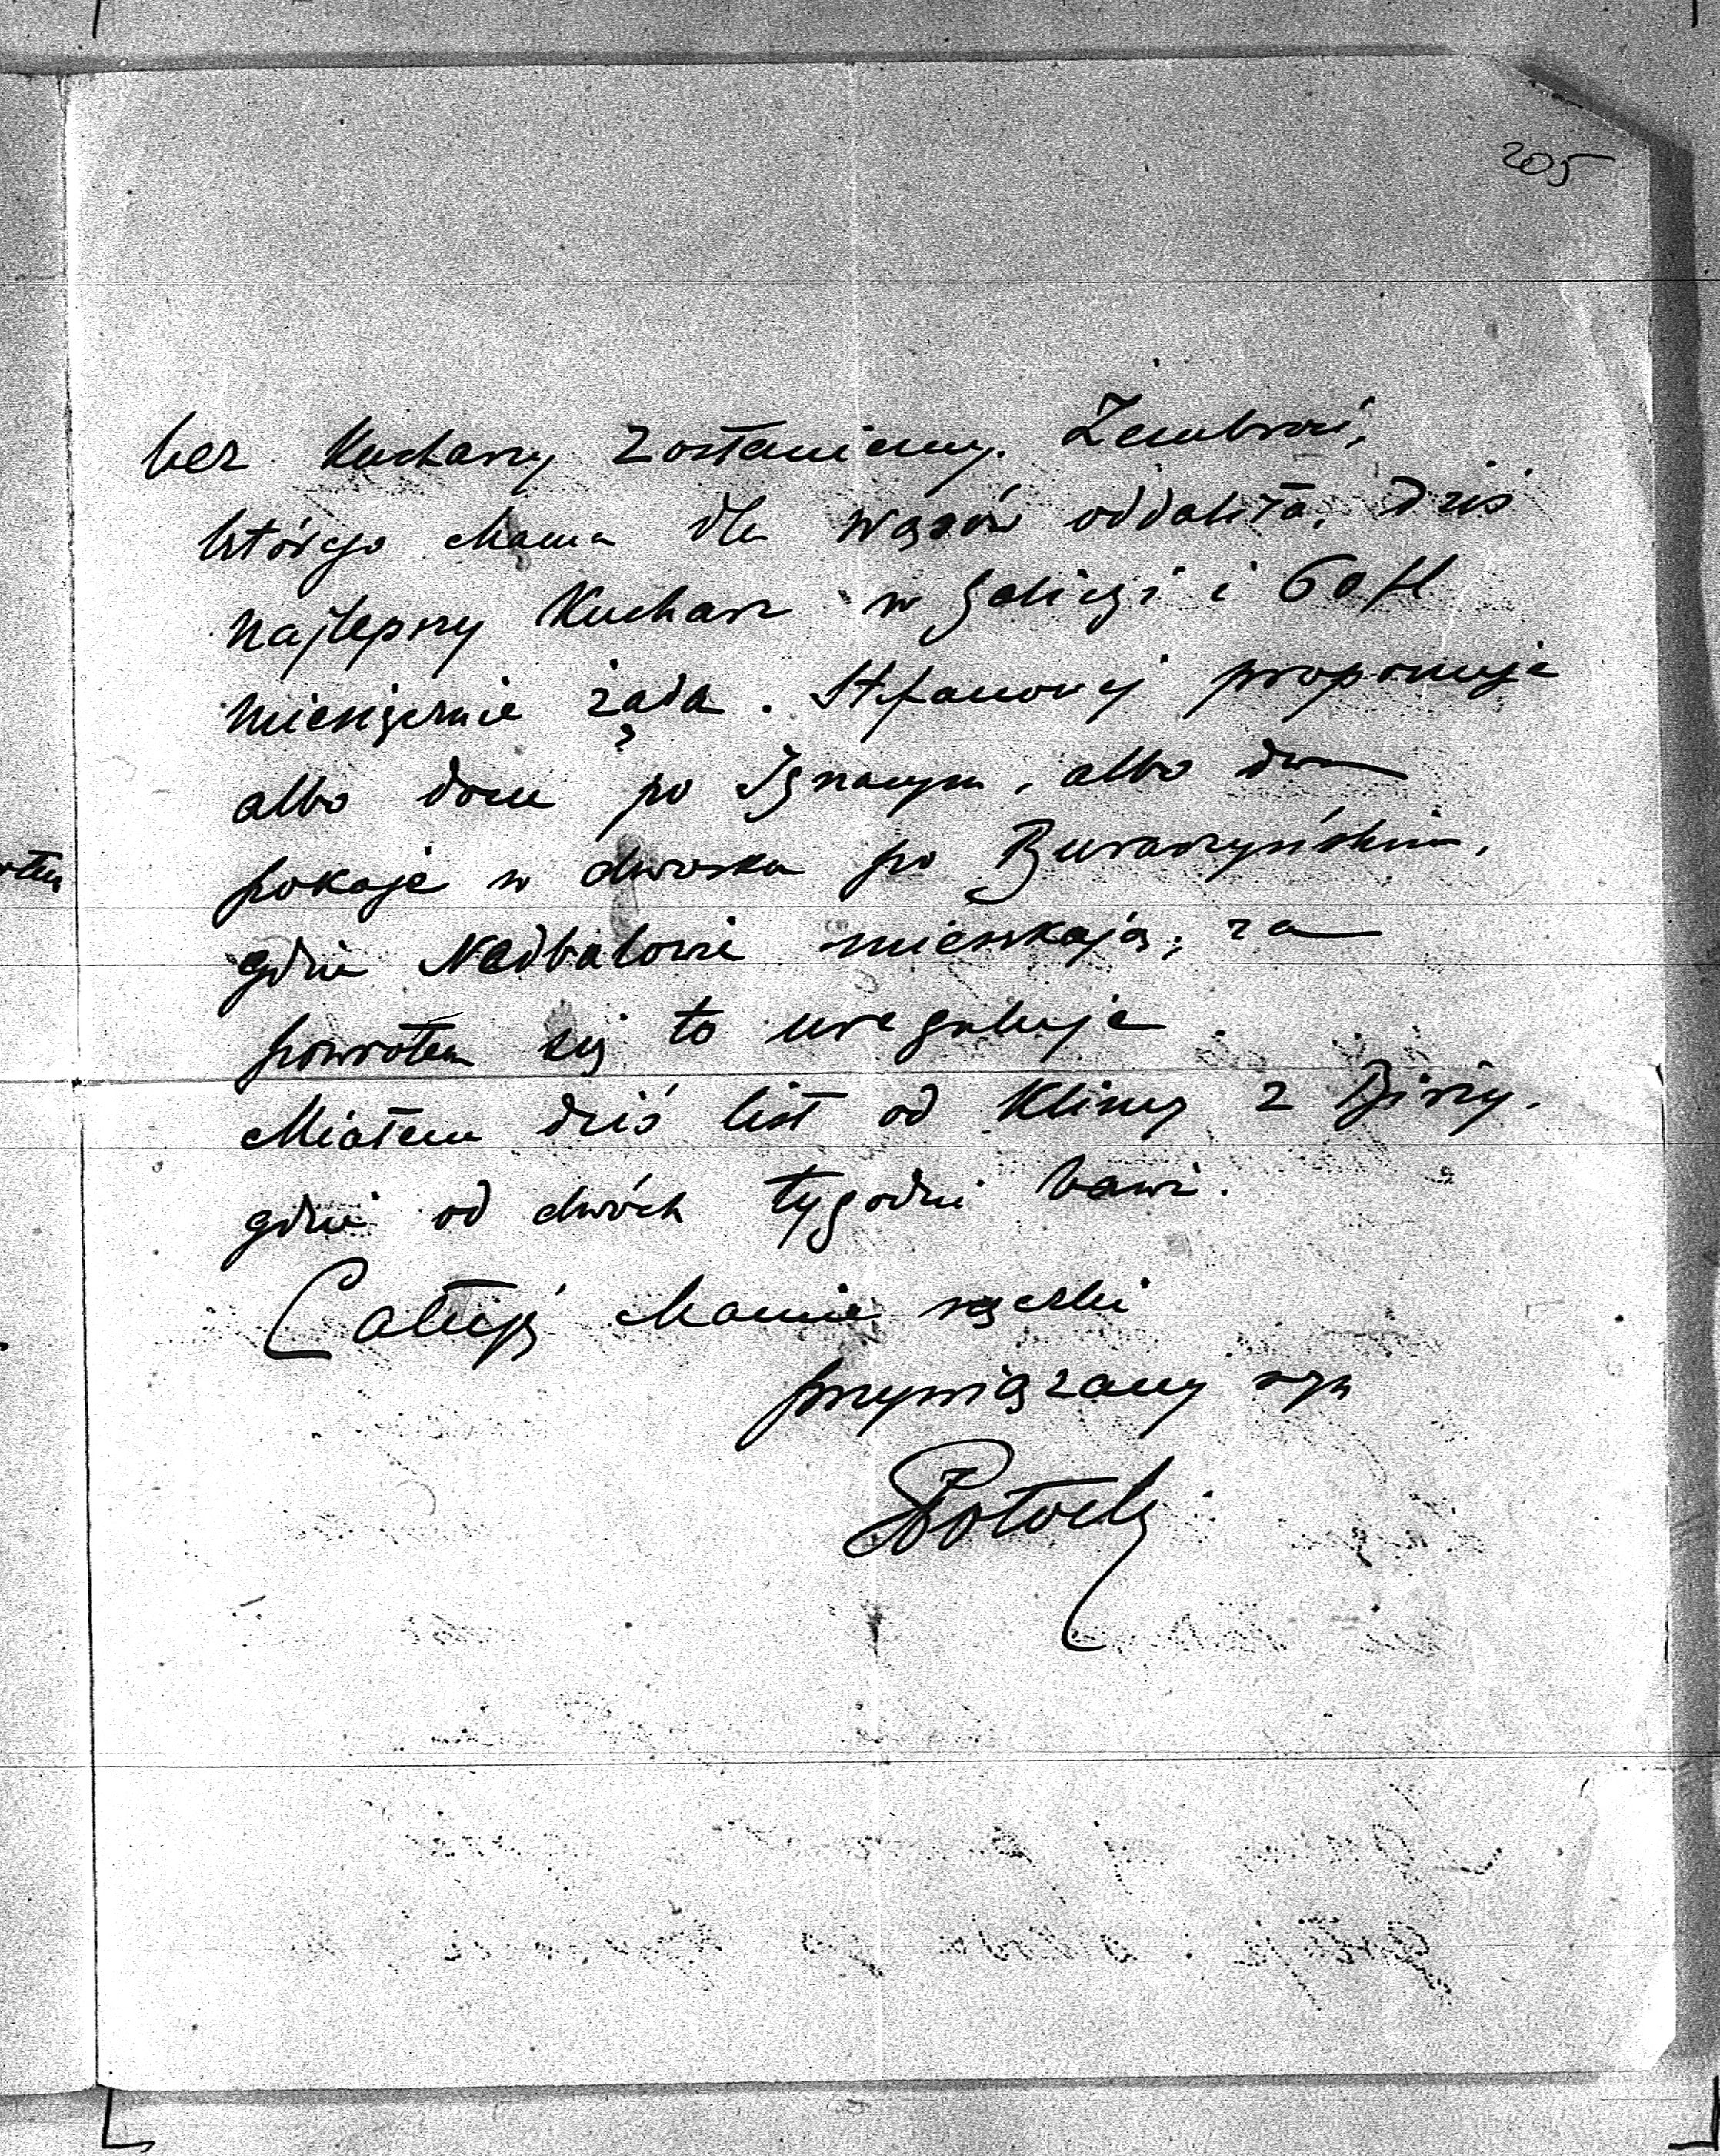 205
bez Kucharzy zostaniemy. Żembroń,
którego Mama dla wąsów oddaliła, dziś
najlepszy Kucharz w Galicyi i 60 fl
miesięcznie żąda. Stefanowej proponuję
albo dom po Ignacym, albo dwa
pokoje w dworku po Buraczyńskim,
gdzie Niedbałowie mieszkają; za
powrotem się to ureguluje
Miałem dziś list od Klimy z
gdzie od dwóch tygodni bawi.
Całuję Mamie rączki
przywiązany syn
RPotocki